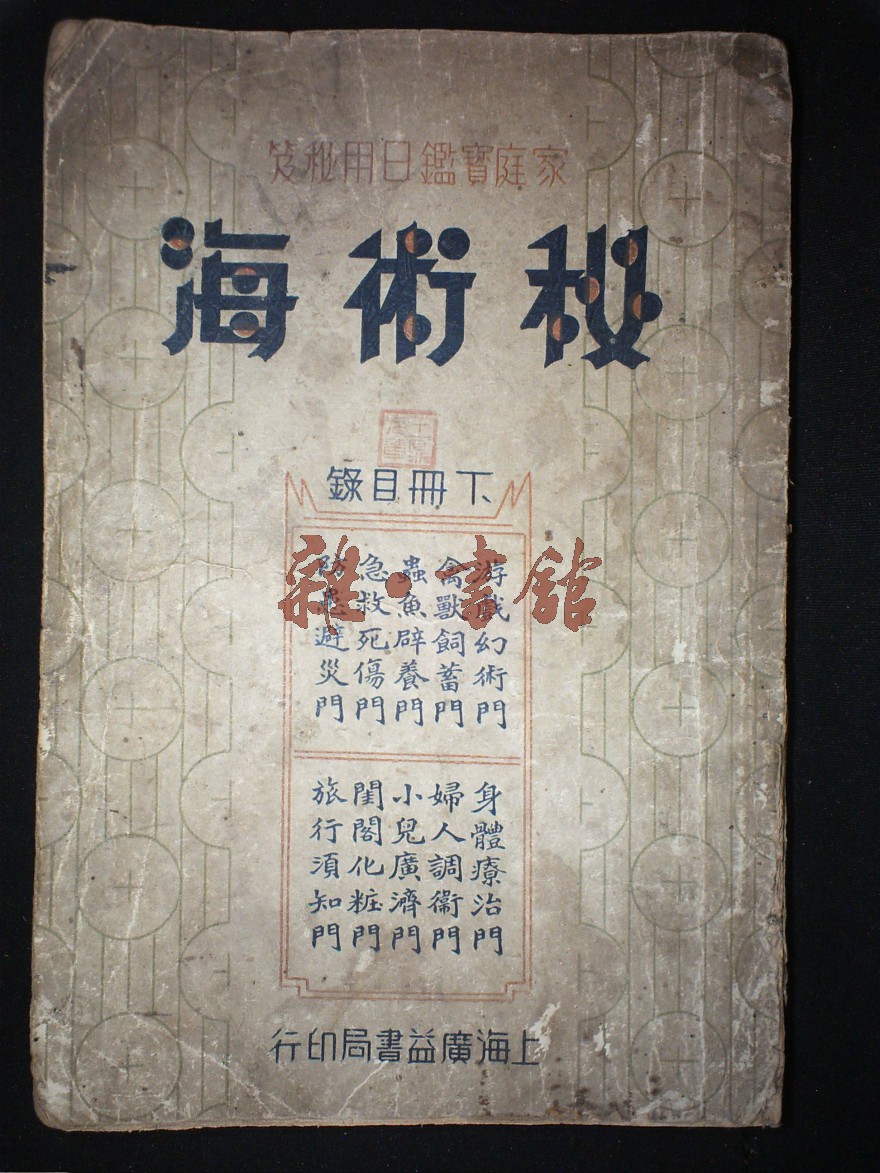 家庭寶鑑日用秘笈
秘術海
下冊目錄
游戲幻術門
禽獸飼蓄門
蟲魚辟養門
急救死傷門
防患避災門
身體療治門
婦人調衞門
小兒廣濟門
閨閣化粧門
旅行須知門
上海廣益書局印行
雜·書館